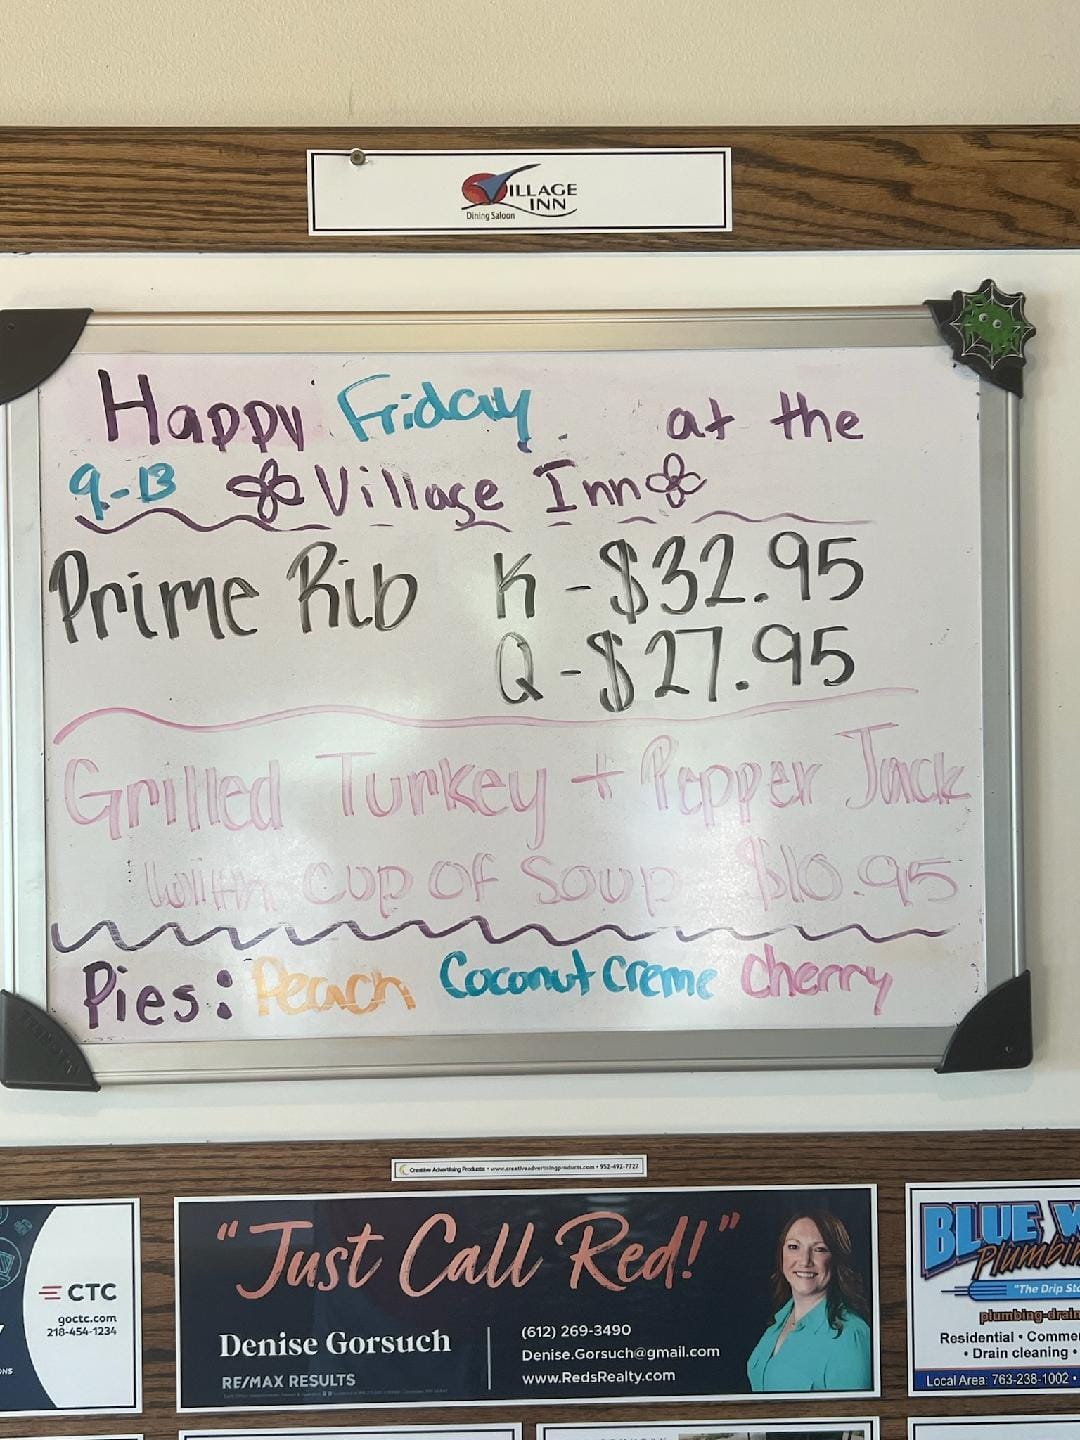 VILLAGE
INN
Dining Saloon
Happy Friday at the
9-13 Village Inn
Prime Rib K - $32.95
Q - $27.95
Grilled Turkey + Pepper Jack
with cup of Soup $10.95
Pies: Peach Coconut Creme Cherry
Creative Advertising Products • www.creativeadvertisingproducts.com • 952-492-7727
CTC
goctc.com
218-454-1234
"Just Call Red!"
Denise Gorsuch
RE/MAX RESULTS
(612) 269-3490
Denise.Gorsuch@gmail.com
www.RedsRealty.com
BLUE
"The Drip
Residential •
• Drain cleaning •
Local Area: 763-238-1002 •